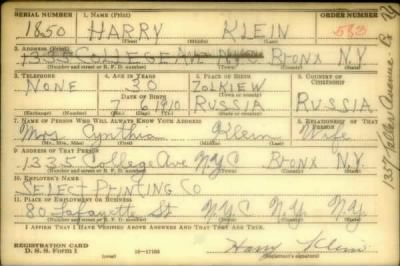 SERIAL NUMBER 1. NAME (Print) ORDER NUMBER
1850 HARRY KLEIN
(First) (Middle) (Last)
2. ADDRESS (Print)
1335 COLLEGE AVE NYC BRONX N.Y.
(Number and street or R. F. D. number) (Town) (County) (State)
3. TELEPHONE 4. AGE IN YEARS 5. PLACE OF BIRTH 6. COUNTRY OF CITIZENSHIP
NONE 30 ZOLKIEW
DATE OF BIRTH (Town or county)
7 6 1910 RUSSIA RUSSIA
(Exchange) (Number) (Mo.) (Day) (Yr.) (State or country)
7. NAME OF PERSON WHO WILL ALWAYS KNOW YOUR ADDRESS 8. RELATIONSHIP OF THAT PERSON
Mrs Cynthia Klein Wife
(Mr., Mrs., Miss) (First) (Middle) (Last)
9. ADDRESS OF THAT PERSON
1335 College Ave NYC Bronx N.Y.
(Number and street or R. F. D. number) (Town) (County) (State)
10. EMPLOYER'S NAME
SELECT PRINTING CO
11. PLACE OF EMPLOYMENT OR BUSINESS
80 Lafayette St NYC NY NY
(Number and street or R. F. D. number) (Town) (County) (State)
I AFFIRM THAT I HAVE VERIFIED ABOVE ANSWERS AND THAT THEY ARE TRUE.
REGISTRATION CARD
D. S. S. Form 1 16-17105 Harry Klein
(Registrant's signature)